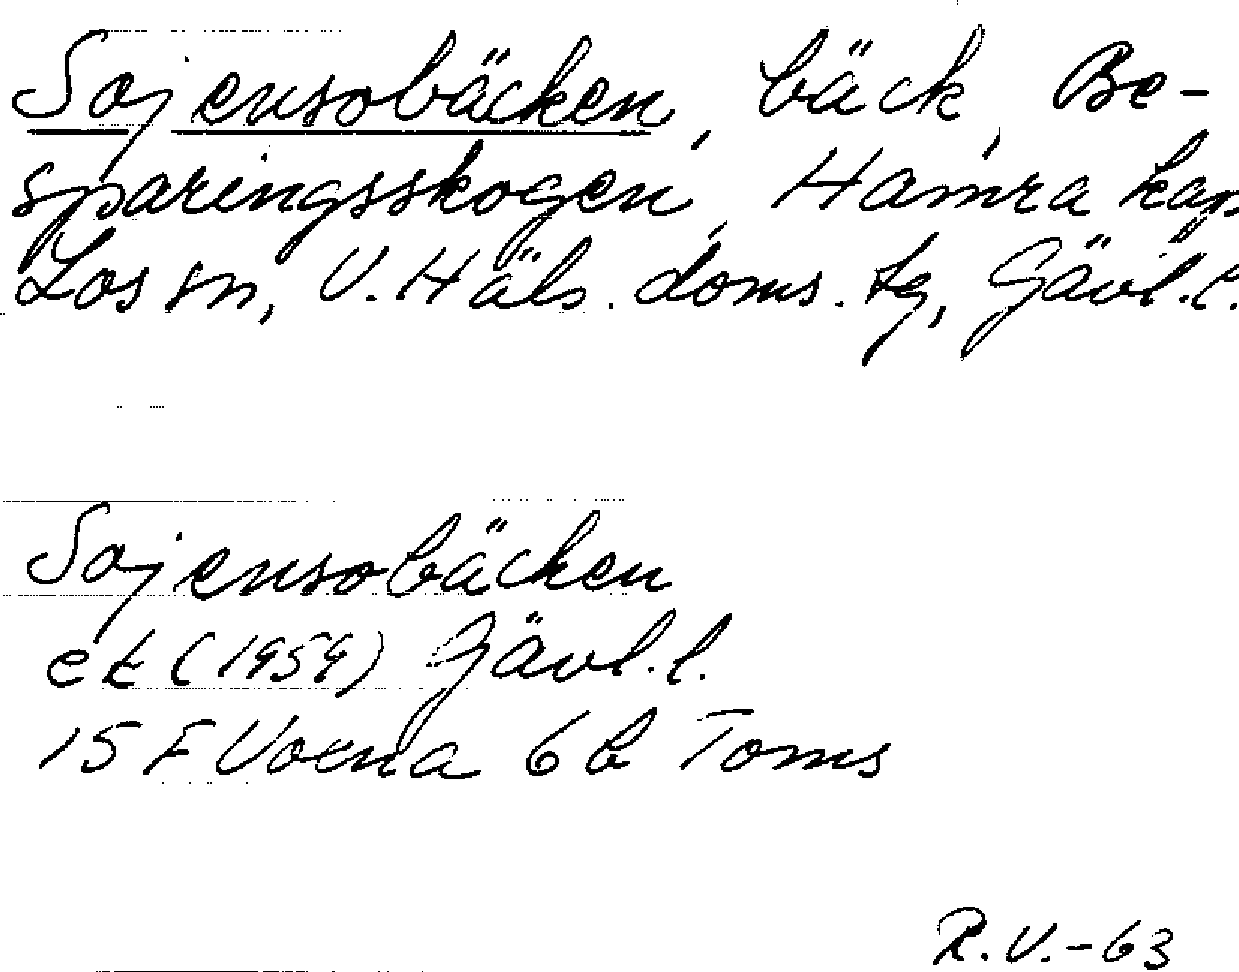 Sojensobäcken, bäck, Be-
sparingsskogen, Hamra kap
Los sn, V. Häls. doms. tg, Gävl.l.
Sojensobäcken
ek (1959) Gävl.l.
15 F Voxna 6 b Toms
R.V.-63